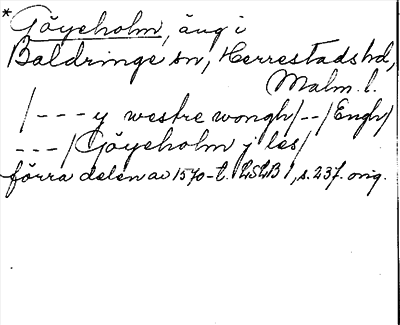 * Göyeholm, äng i
Baldringe sn, Herrestads hd,
Malm. l.
/--- y westre wongh/--/Engh/
---/Göyeholm j les/
förra delen av 1570-t. LSLB 1, s. 237. orig.